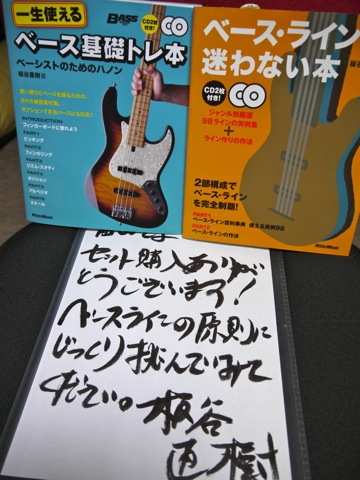 一生使える
BASS
CD2枚付き!
ベース基礎トレ本
ベーシストのためのハノン
板谷直樹
INTRODUCTION
フィンガーボードに慣れよう
PART1
ピッキング
PART2
フィンガリング
PART3
リズム・スタディ
PART4
ポジション
PART5
アルペジオ
PART6
スケール
RittorMusic
ベース・ライン
迷わない本
CD2枚付き!
ジャンル別厳選
98ラインの実例集
+
ライン作りの作法
2部構成で
ベース・ラインを
完全制覇!
PART1
ベース・ライン百科事典 使える実例98
PART2
ベース・ラインの作法
RittorMusic
セット購入ありが
とうございます!
ベースラインの原則に
じっくり挑んでいみて
ください。板谷
直樹